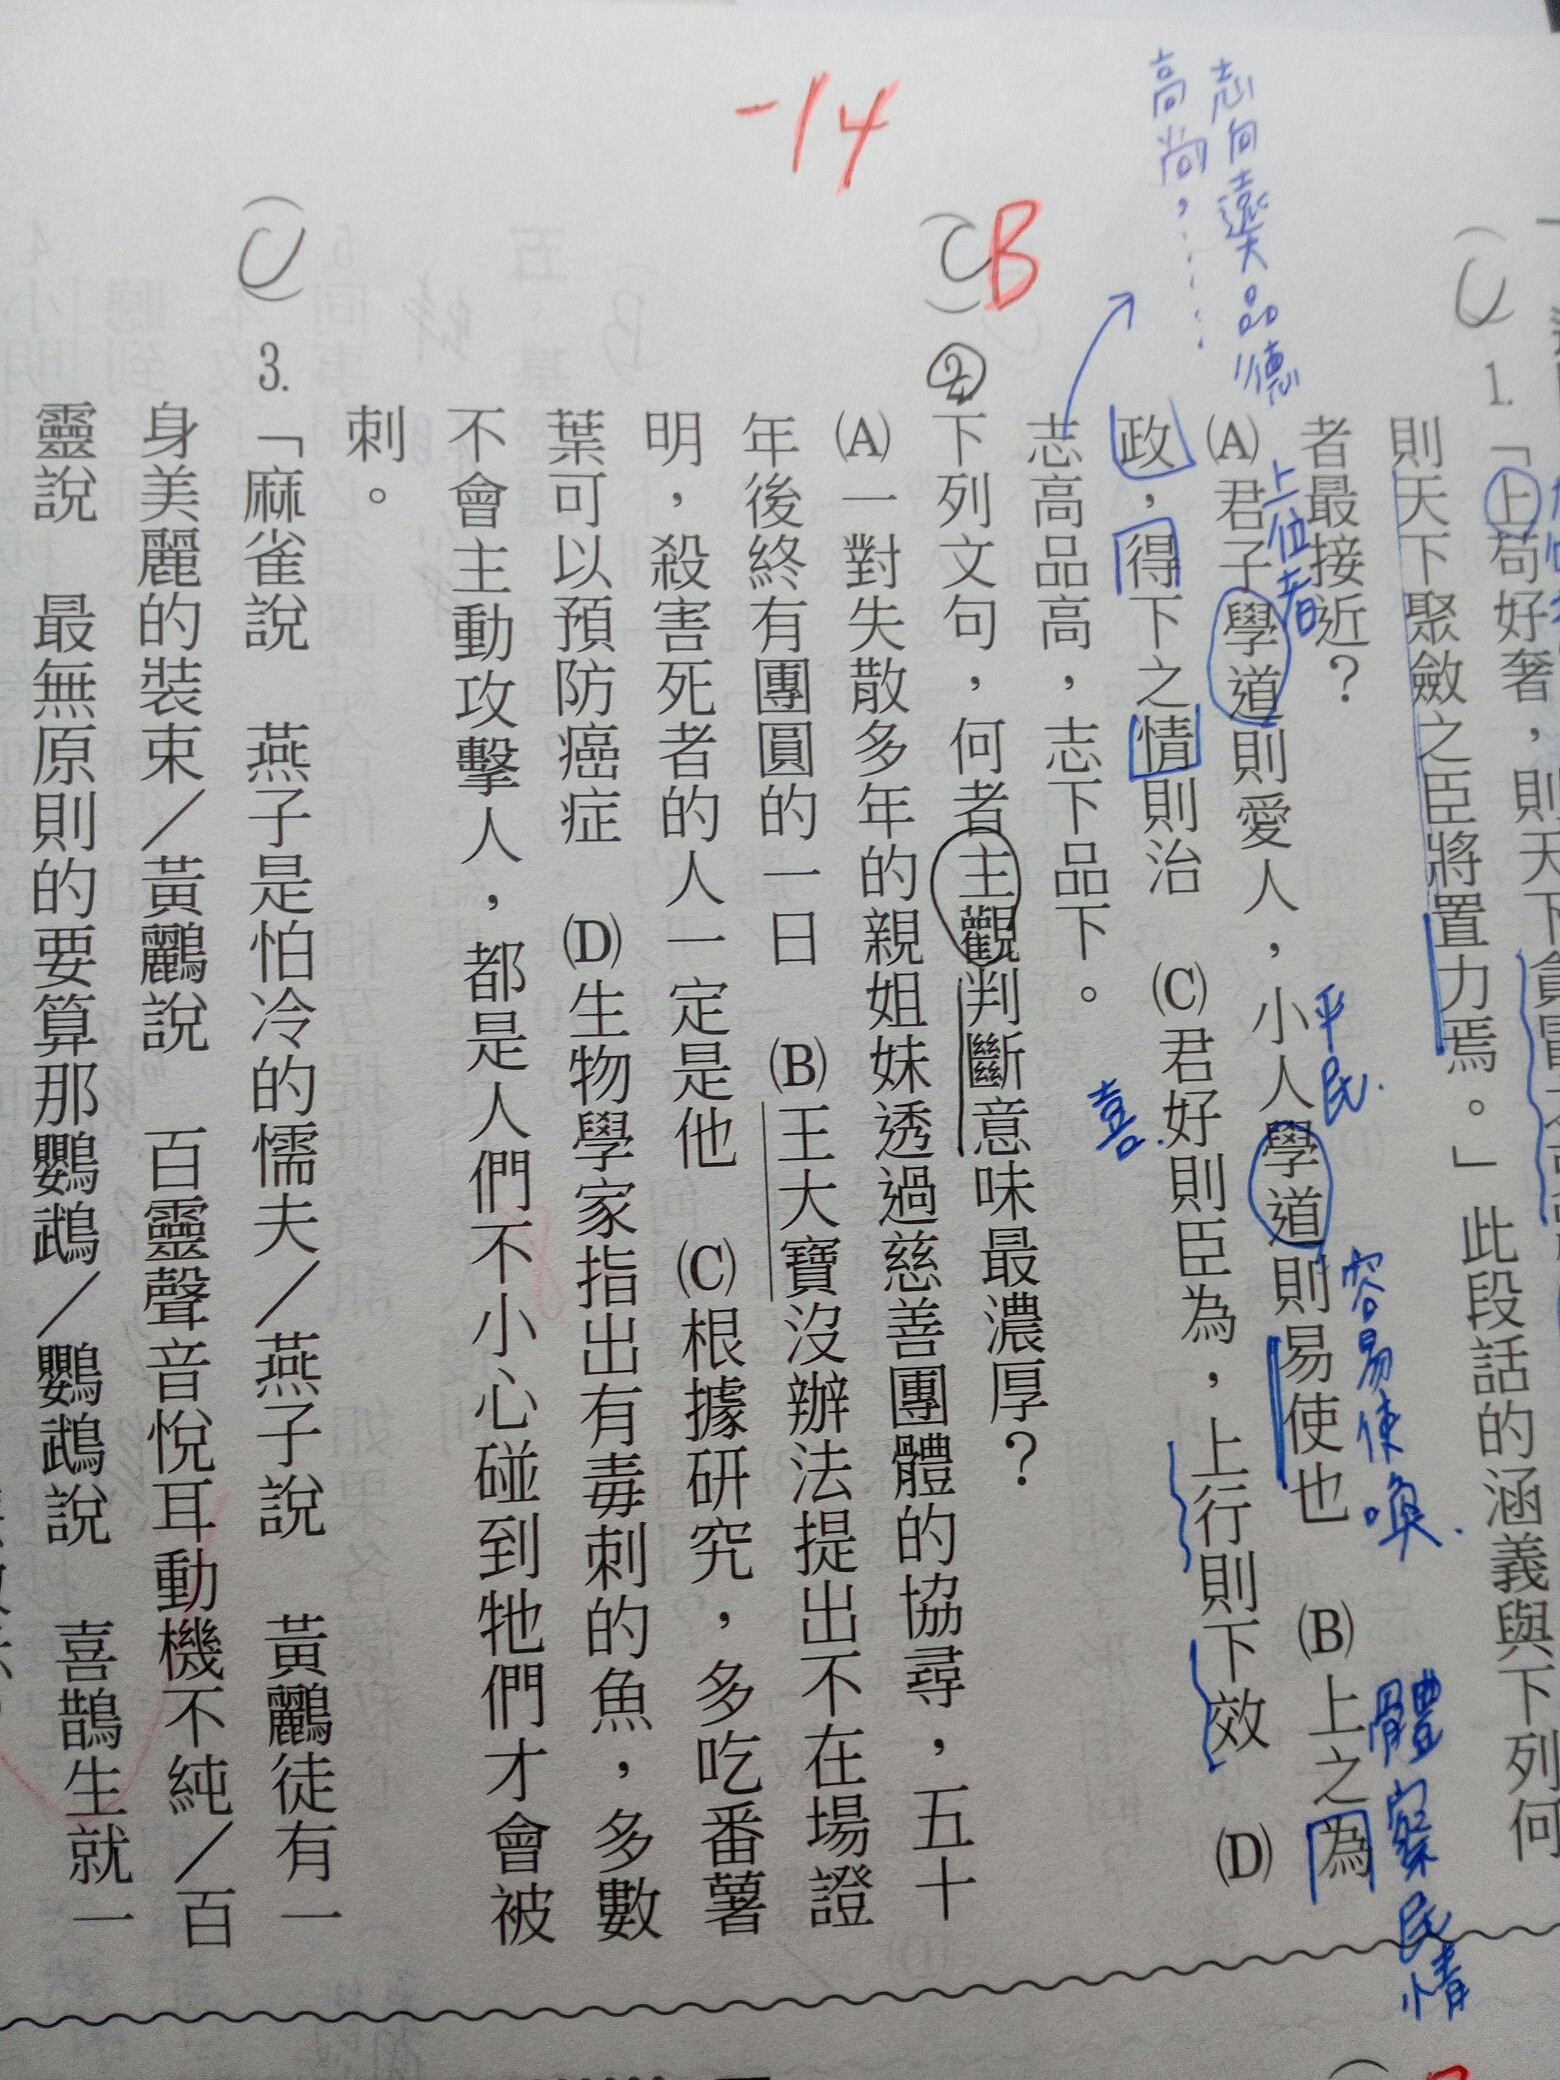 -14
志向遠大品德
高尚，……
(C)
1.「上苟好奢，則天下貪冒之
則天下聚斂之臣將置力焉。」此段話的涵義與下列何
者最接近？
(A)君子學道則愛人，小人學道則易使也　(B)上之為
上位者
平民
容易使喚
體察民情
政，得下之情則治　(C)君好則臣為，上行則下效　(D)
喜
志高品高，志下品下。
(C)B
2.下列文句，何者主觀判斷意味最濃厚？
(A)一對失散多年的親姐妹透過慈善團體的協尋，五十
年後終有團圓的一日　(B)王大寶沒辦法提出不在場證
明，殺害死者的人一定是他　(C)根據研究，多吃番薯
葉可以預防癌症　(D)生物學家指出有毒刺的魚，多數
不會主動攻擊人，都是人們不小心碰到牠們才會被
刺。
(C)
3.「麻雀說　燕子是怕冷的懦夫／燕子說　黃鸝徒有一
身美麗的裝束／黃鸝說　百靈聲音悅耳動機不純／百
靈說　最無原則的要算那鸚鵡／鸚鵡說　喜鵲生就一